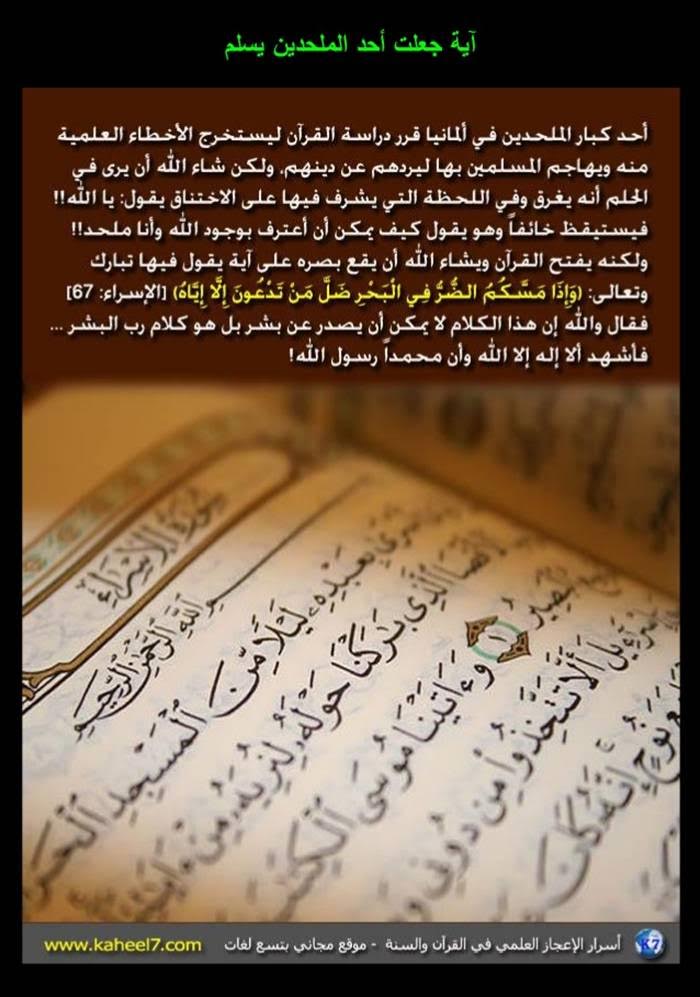 آية جعلت أحد الملحدين يسلم
أحد كبار الملحدين في ألمانيا قرر دراسة القرآن ليستخرج الأخطاء العلمية
منه ويهاجم المسلمين بها ليردهم عن دينهم، ولكن شاء الله أن يرى في
الحلم أنه يغرق وفي اللحظة التي يشرف فيها على الاختناق يقول: يا الله!!
فيستيقظ خائفاً وهو يقول كيف يمكن أن أعترف بوجود الله وأنا ملحد!!
ولكنه يفتح القرآن ويشاء الله أن يقع بصره على آية يقول فيها تبارك
وتعالى: (وَإِذَا مَسَّكُمُ الضُّرُّ فِي الْبَحْرِ ضَلَّ مَنْ تَدْعُونَ إِلَّا إِيَّاهُ) [الإسراء: 67]
فقال والله إن هذا الكلام لا يمكن أن يصدر عن بشر بل هو كلام رب البشر ...
فأشهد ألا إله إلا الله وأن محمداً رسول الله!
سُورَةُ الْإِسْرَاءِ
اللَّهِ الرَّحْمَٰنِ الرَّحِيمِ
بِعَبْدِهِ لَيْلًا مِّنَ الْمَسْجِدِ الْحَرَ
الْأَقْصَا الَّذِي بَارَكْنَا حَوْلَهُ لِنُرِيَهُ مِنْ ءَايَٰتِ
الْبَصِيرُ ١ وَءَاتَيْنَا مُوسَى الْكِتَٰبَ
إِسْرَٰٓءِيلَ أَلَّا تَتَّخِذُوا مِن دُونِي وَ
نُوحٍ إِنَّهُ كَانَ
K7 أسرار الإعجاز العلمي في القرآن والسنة - موقع مجاني بتسع لغات www.kaheel7.com